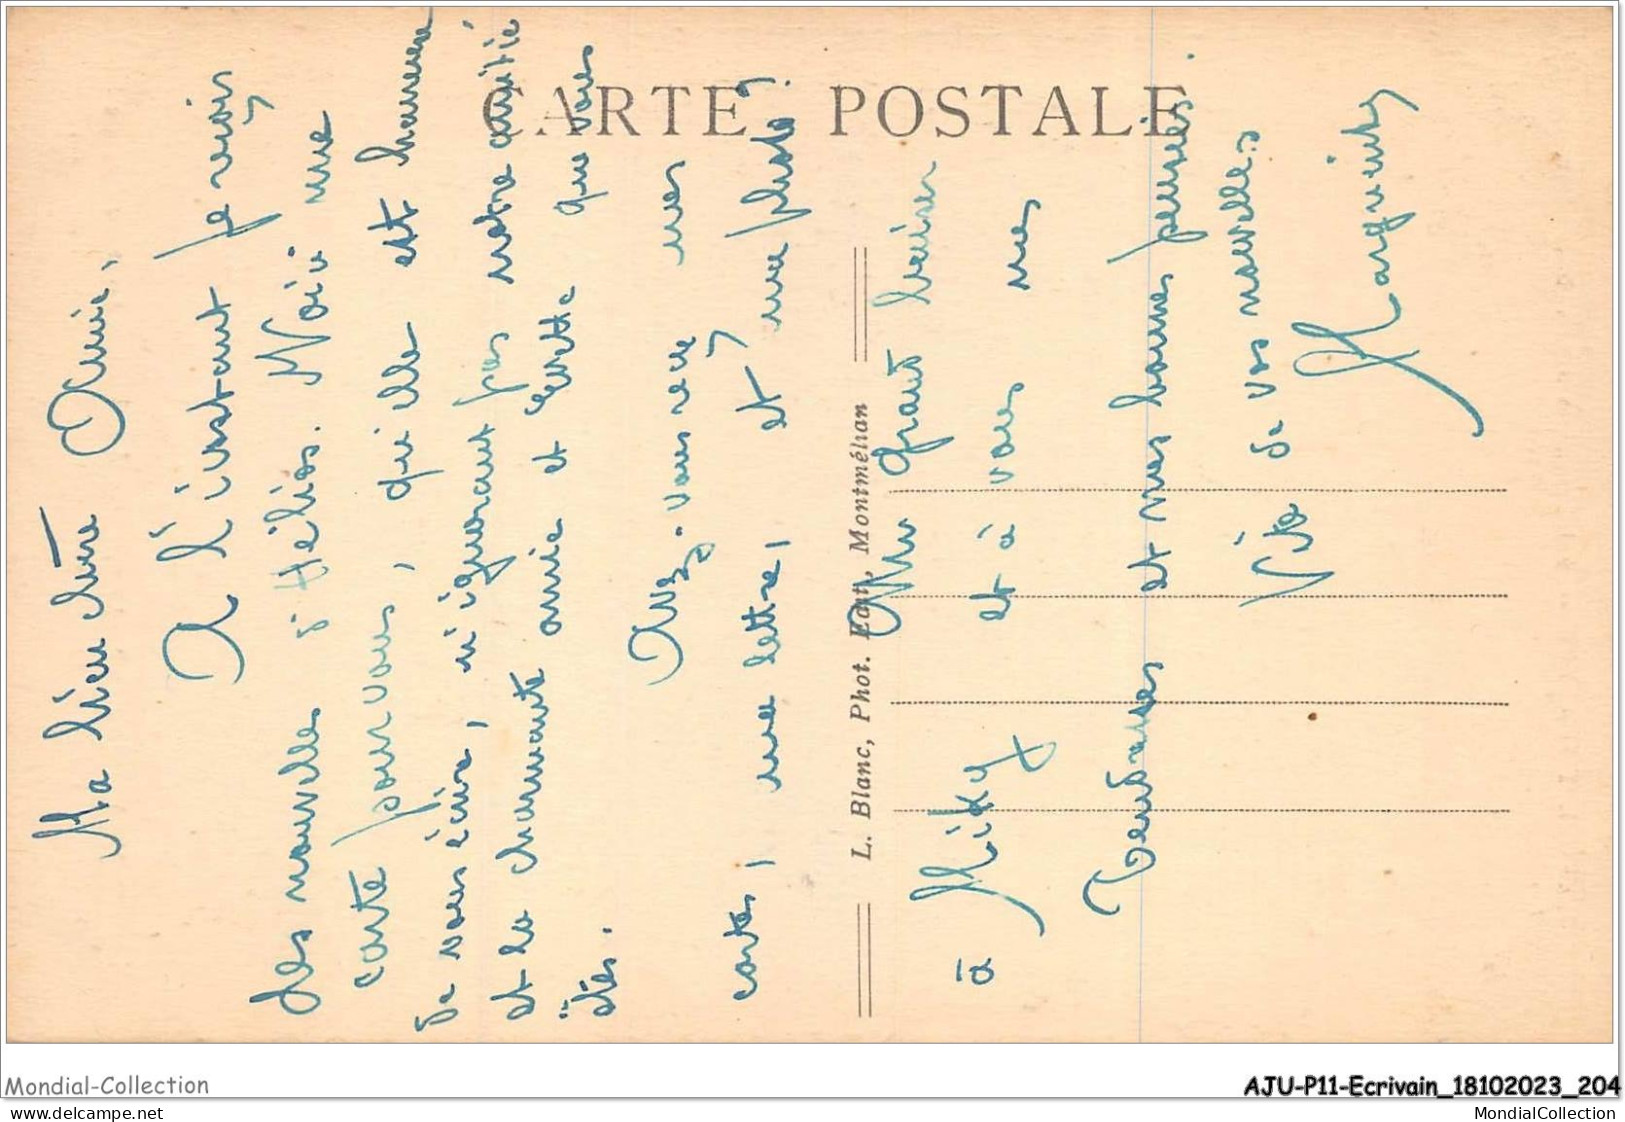 CARTE POSTALE
L. Blanc, Phot. Edit., Montmélian
Ma bien chère Amie,
A l'instant je reçois
des nouvelles d'Hélios. Voici une
carte pour vous, qu'elle est heureuse
de vous écrire, n'ignorant pas notre amitié
et la charmante amie et que vous
êtes.
Avez-vous reçu mes
cartes, une lettre, et ma photo ?
Un grand baiser
à Miky et à vous mes
Tendresses et mes bonnes pensées.
Vite de vos nouvelles
Marguerite
Mondial-Collection
AJU-P11-Ecrivain_18102023_204
www.delcampe.net
MondialCollection